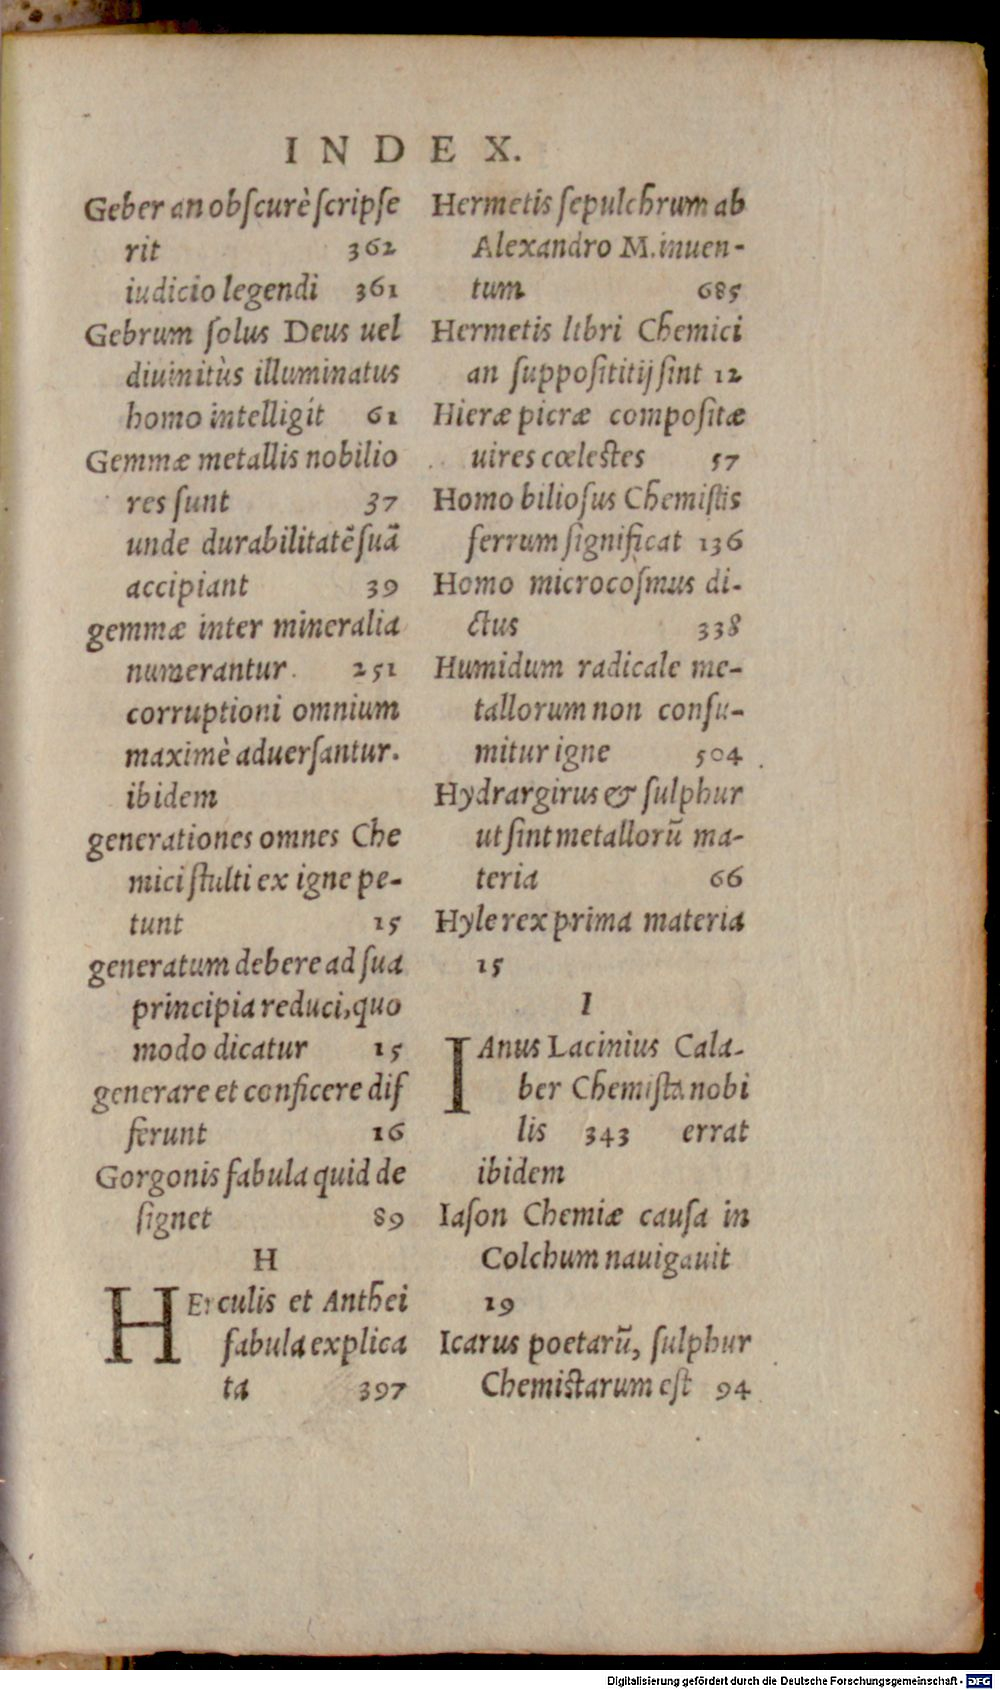 INDEX.
Geber an obſcurè ſcripſe
rit 362
iudicio legendi 361
Gebrum ſolus Deus uel
diuinitùs illuminatus
homo intelligit 61
Gemmæ metallis nobilio
res ſunt 37
unde durabilitatẽ ſuã
accipiant 39
gemmæ inter mineralia
numerantur. 251
corruptioni omnium
maximè aduerſantur.
ibidem
generationes omnes Che
mici ſtulti ex igne pe-
tunt 15
generatum debere ad ſua
principia reduci, quo
modo dicatur 15
generare et conficere dif
ferunt 16
Gorgonis fabula quid de
ſignet 89
H
HErculis et Anthei
fabula explica
ta 397
Hermetis ſepulchrum ab
Alexandro M. inuen-
tum 685
Hermetis libri Chemici
an ſuppoſititij ſint 12
Hieræ picræ compoſitæ
uires cœleſtes 57
Homo bilioſus Chemiſtis
ferrum ſignificat 136
Homo microcoſmus di-
ctus 338
Humidum radicale me-
tallorum non conſu-
mitur igne 504
Hydrargirus & ſulphur
ut ſint metallorũ ma-
teria 66
Hyle rex prima materia
15
I
IAnus Lacinius Cala-
ber Chemiſta nobi
lis 343 errat
ibidem
Iaſon Chemiæ cauſa in
Colchum nauigauit
19
Icarus poetarũ, ſulphur
Chemiſtarum eſt 94
Digitalisierung gefördert durch die Deutsche Forschungsgemeinschaft - DFG